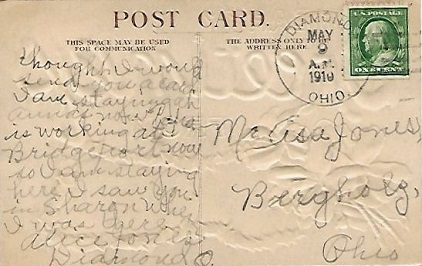 POST CARD.
THIS SPACE MAY BE USED
FOR COMMUNICATION
THE ADDRESS ONLY TO BE
WRITTEN HERE
DIAMOND
MAY
9
A.M.
1910
OHIO.
U.S. POSTAGE
ONE CENT
thought I would
send you a card
I am staying at
annas now
is working at
Bridgeport now
so I am staying
here I saw you
in Sharon when
I was there
Alice Jones
Diamond O.
Jones
Bergholz,
Ohio